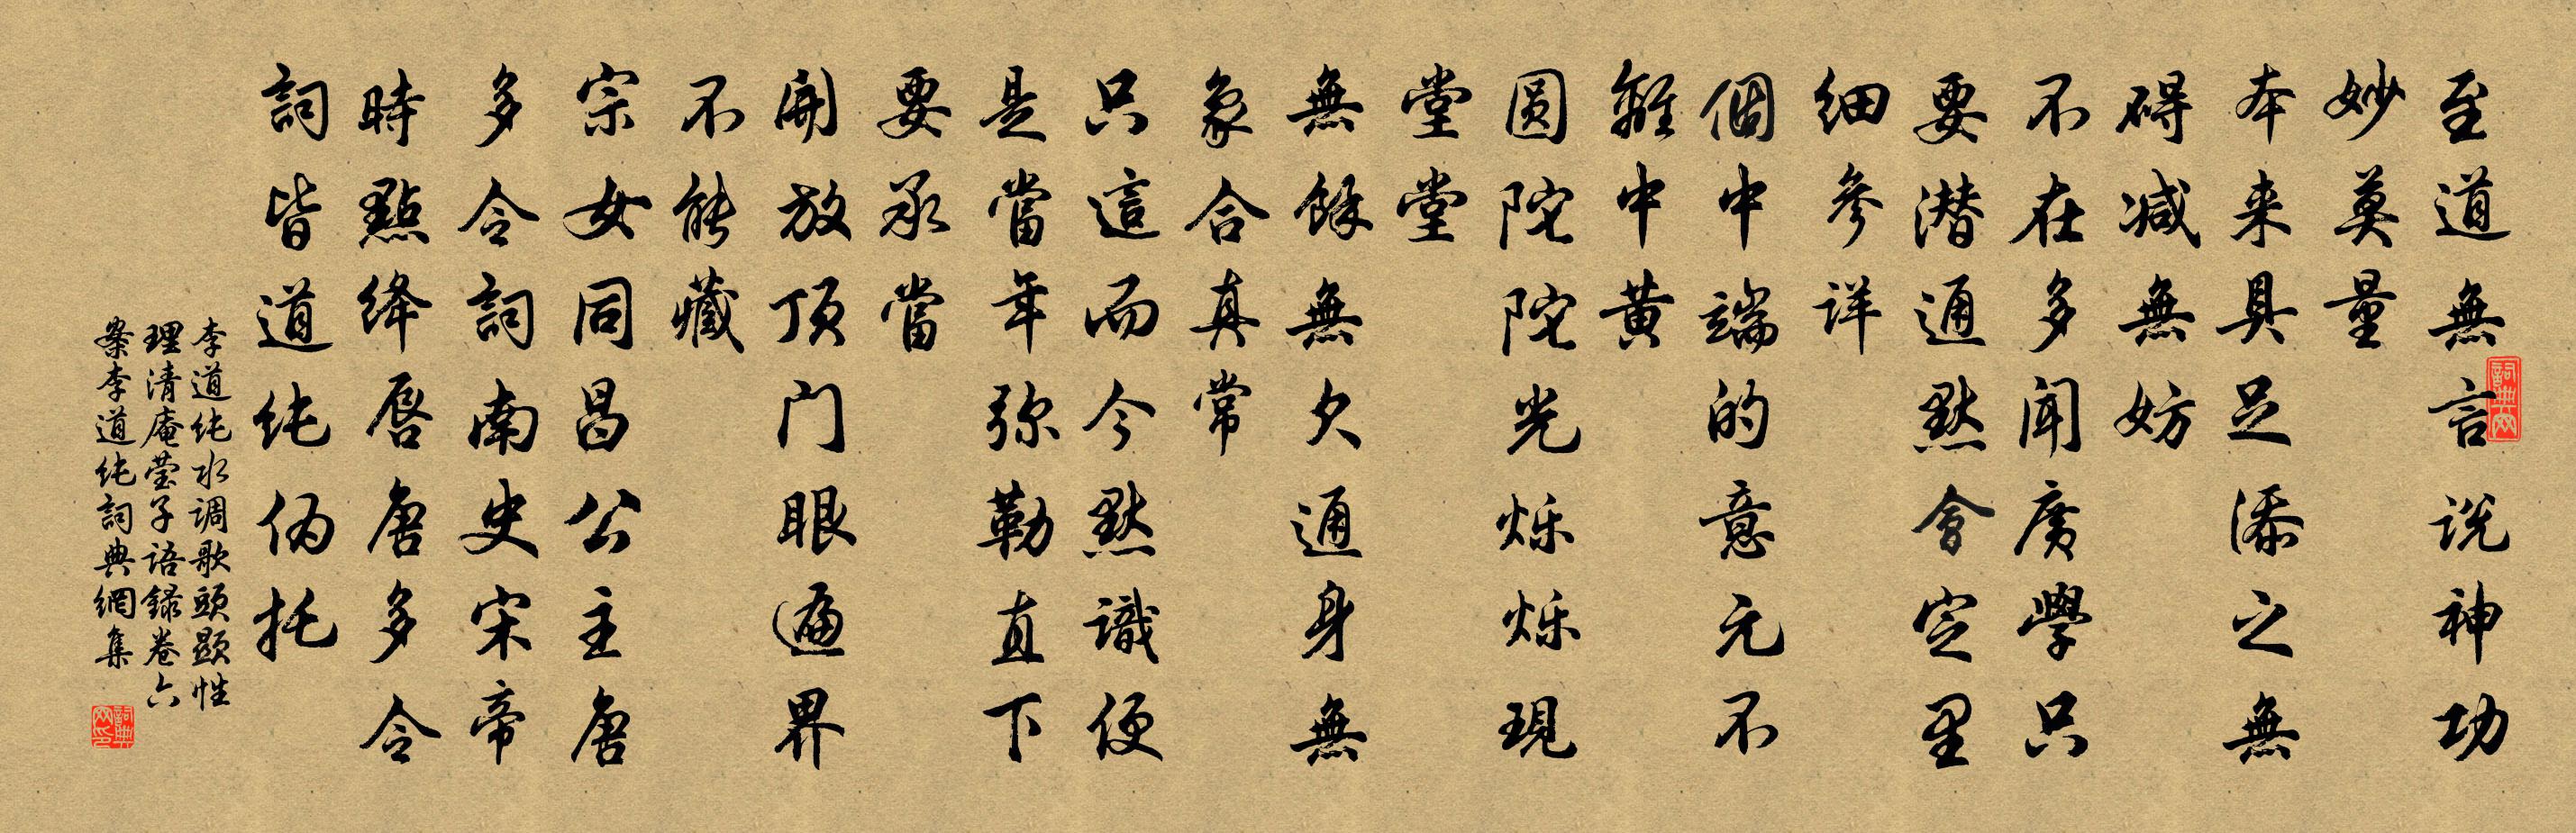 至道無言说神功
妙莫量
本来具足添之無
碍减無妨
不在多闻广學只
要潜通默會定里
细参详
個中端的意元不
離中黄
圆陀陀光烁烁現
堂堂
無餘無欠通身無
象合真常
只這而今默識便
是當年弥勒直下
要承當
開放顶门眼遍界
不能藏
宗女同昌公主唐
多令詞南史宋帝
時點绛唇唐多令
詞皆道纯伪托
李道纯水调歌頭题性
理清庵莹子语録卷六
案李道纯詞典網集
詞典网
詞典网印